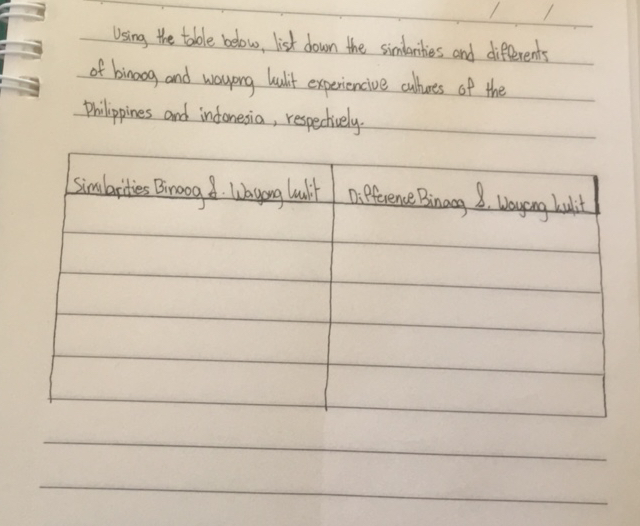 Using the table below, list down the similarities and differents
of binoog, and wayong kulit experiencive cultures of the
Philippines and indonesia, respectively.
Similarities Binoog &. Wayong kulit
Difference Binoog &. Wayong kulit